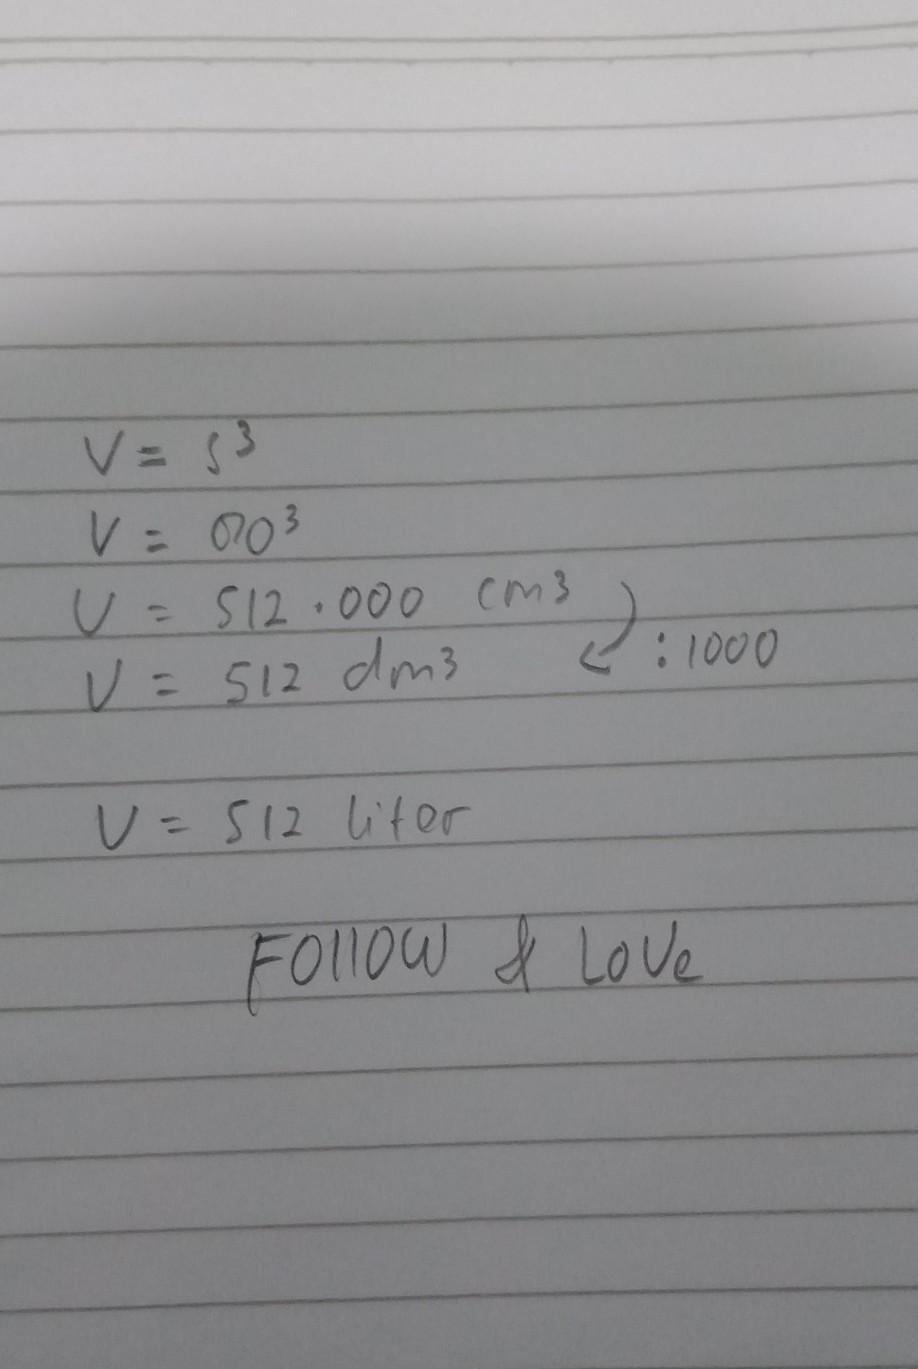 V = s³
V = 80³
V = 512.000 cm3
: 1000
V = 512 dm3
V = 512 liter
FOllOW & LoVe